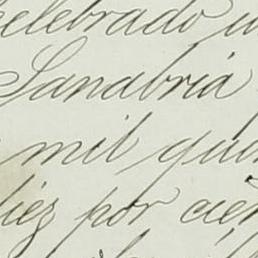 celebrado
Sanabria
mil quin
diez por cien